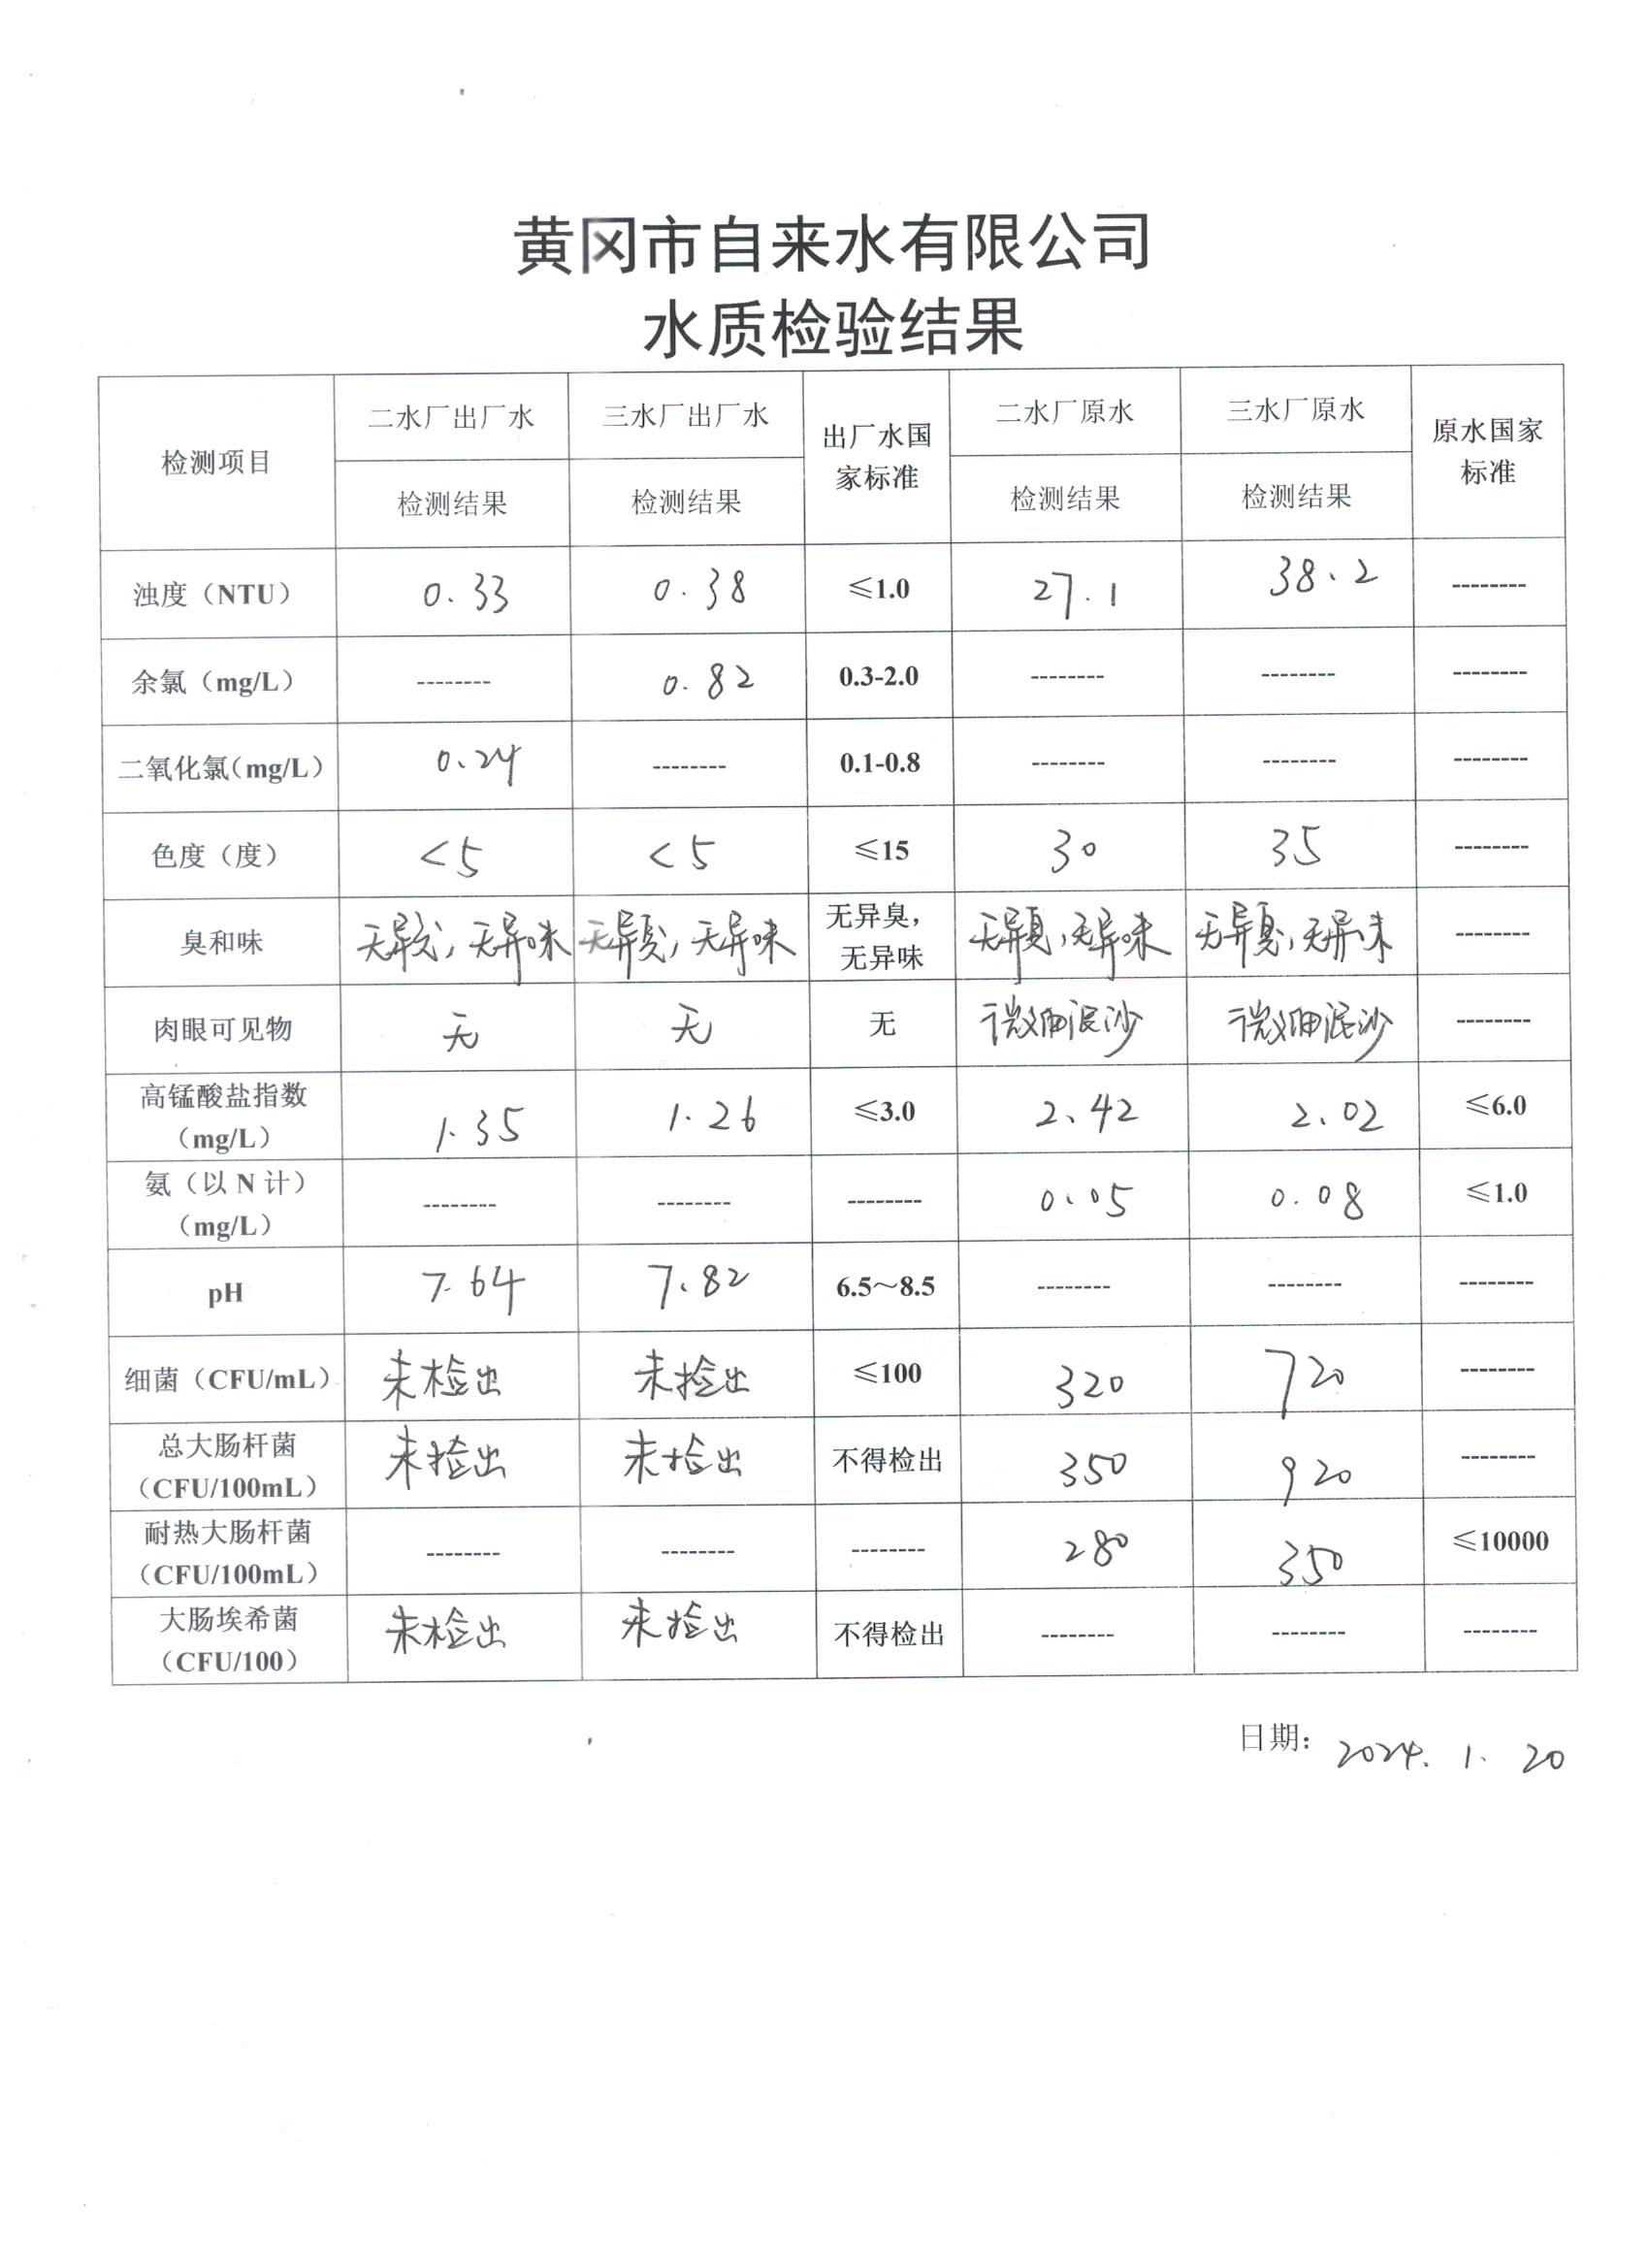 黄冈市自来水有限公司
水质检验结果
检测项目 二水厂出厂水 三水厂出厂水 出厂水国家标准 二水厂原水 三水厂原水 原水国家标准
检测结果 检测结果 检测结果 检测结果
浊度（NTU） 0.33 0.38 ≤1.0 27.1 38.2 --------
余氯（mg/L） -------- 0.82 0.3-2.0 -------- -------- --------
二氧化氯（mg/L） 0.24 -------- 0.1-0.8 -------- -------- --------
色度（度） <5 <5 ≤15 30 35 --------
臭和味 无异臭，无异味 无异臭，无异味 无异臭，无异味 无异臭，无异味 无异臭，无异味 --------
肉眼可见物 无 无 无 微细泥沙 微细泥沙 --------
高锰酸盐指数（mg/L） 1.35 1.26 ≤3.0 2.42 2.02 ≤6.0
氨（以 N 计）（mg/L） -------- -------- -------- 0.05 0.08 ≤1.0
pH 7.64 7.82 6.5～8.5 -------- -------- --------
细菌（CFU/mL） 未检出 未检出 ≤100 320 720 --------
总大肠杆菌（CFU/100mL） 未检出 未检出 不得检出 350 920 --------
耐热大肠杆菌（CFU/100mL） -------- -------- -------- 280 350 ≤10000
大肠埃希菌（CFU/100） 未检出 未检出 不得检出 -------- -------- --------
日期： 2024. 1. 20